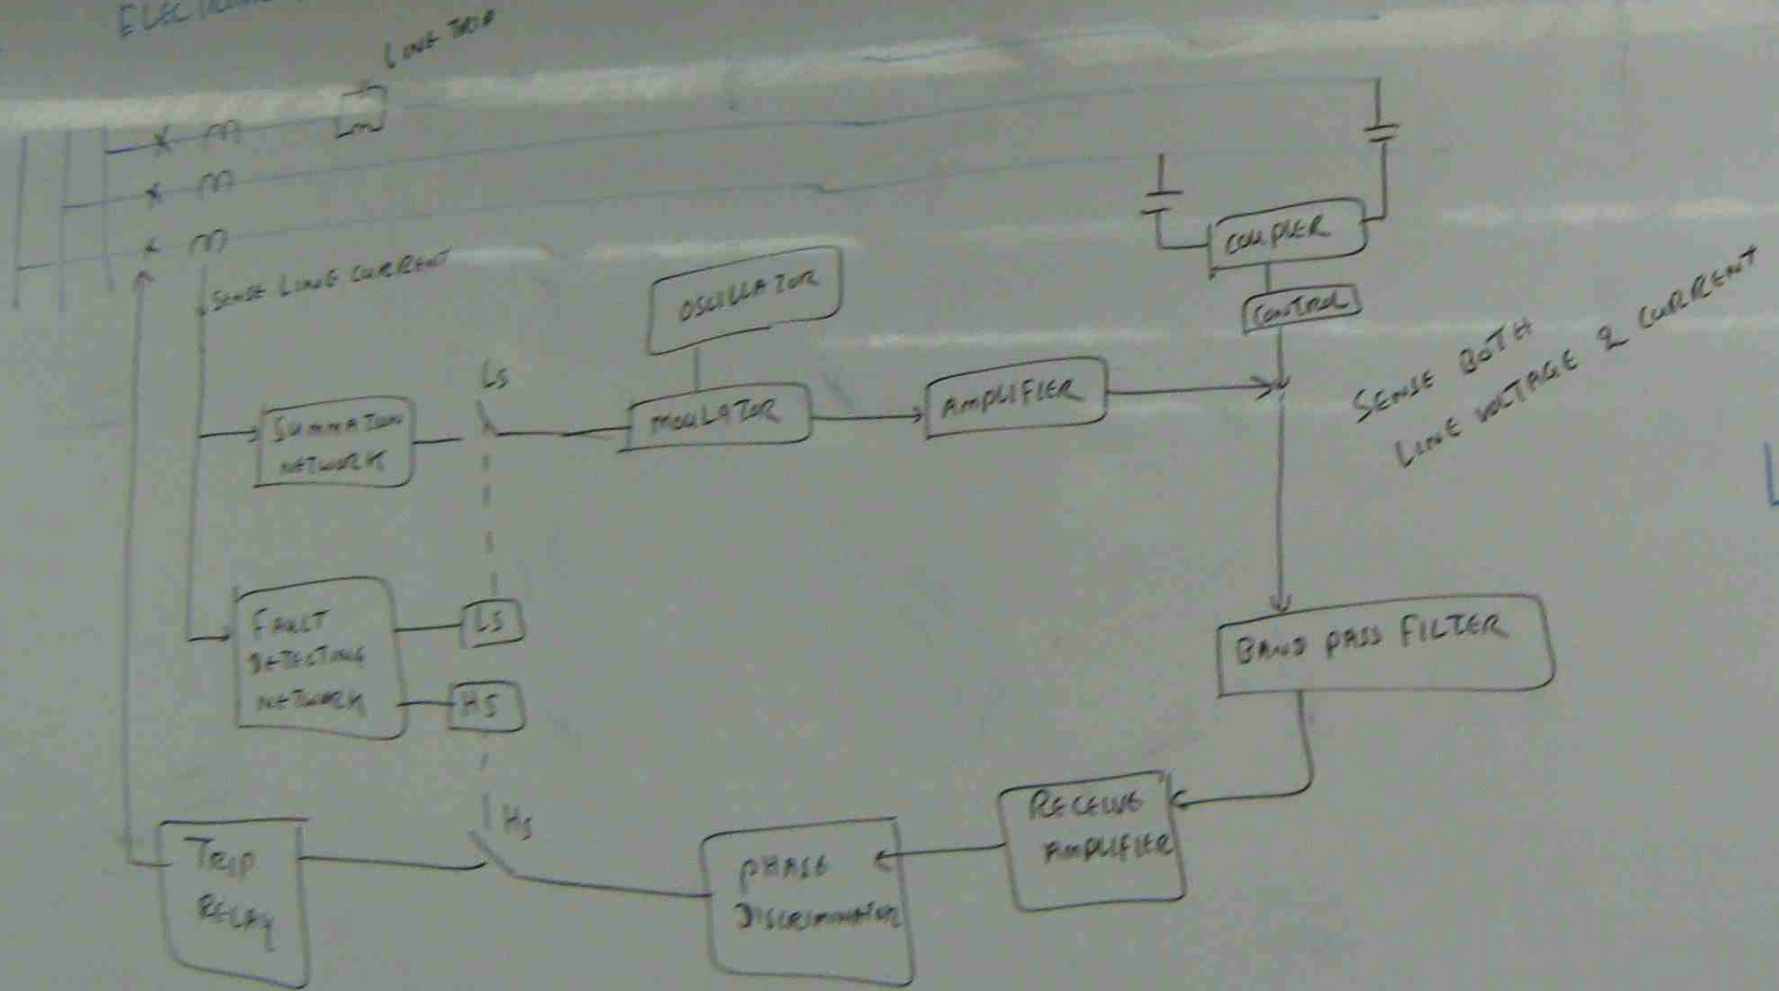 LINE TRAP
SENSE LINE CURRENT
OSCILLATOR
COUPLER
CONTROL
SENSE BOTH
LINE VOLTAGE & CURRENT
LS
SUMMATION
NETWORK
MODULATOR
AMPLIFIER
FAULT
DETECTING
NETWORK
LS
HS
BAND PASS FILTER
HS
TRIP
RELAY
PHASE
DISCRIMINATOR
RECEIVE
AMPLIFIER